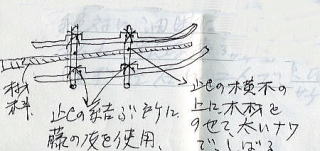 材料
止めの結ぶだけに
藤の皮を使用、
止めの横木の
上に木材を
のせて、太いナワ
でしばる